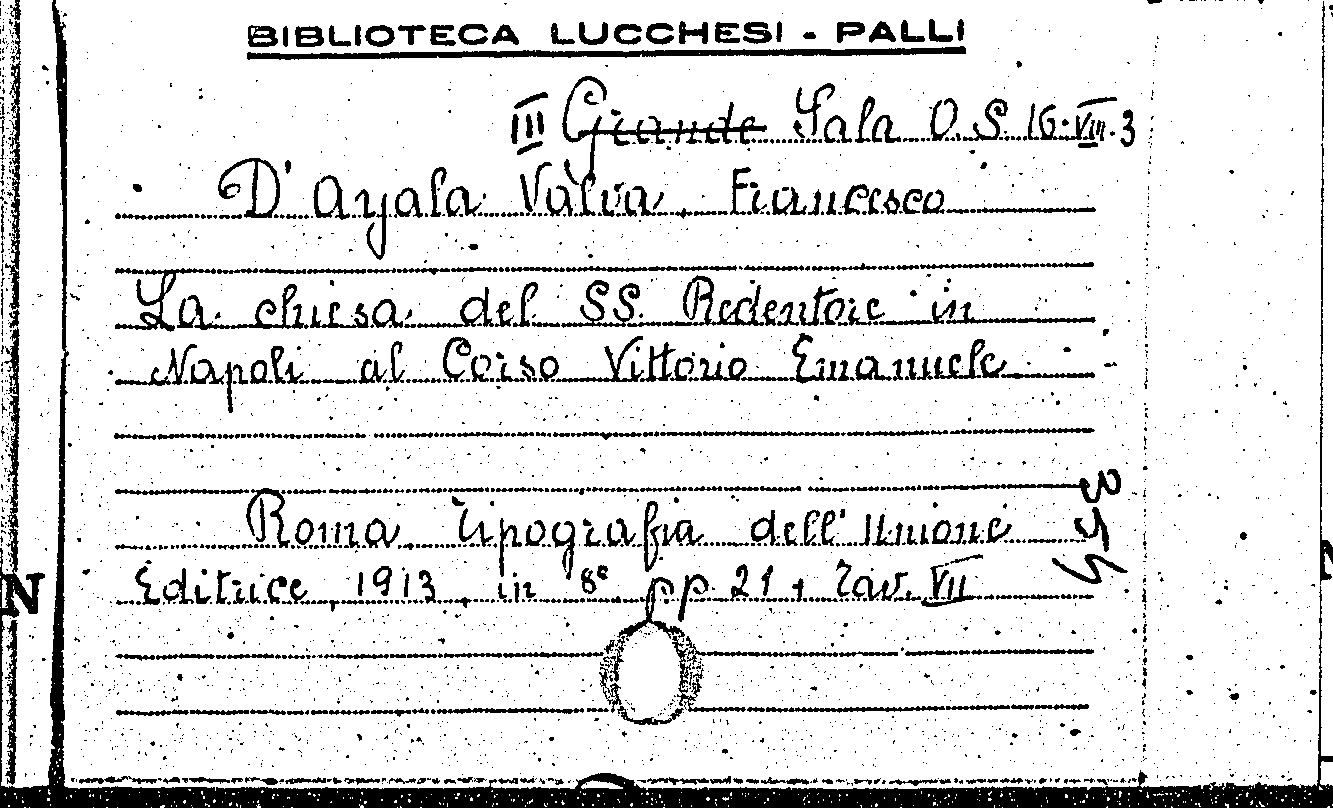 BIBLIOTECA LUCCHESI - PALLI
III Grande Sala O.S. 16.VIII.3
D'Ayala Valva, Francesco
La chiesa del SS. Redentore in
Napoli al Corso Vittorio Emanuele
Roma, Tipografia dell'Unione
Editrice, 1913, in 8° pp. 21 + Tav. VII
N